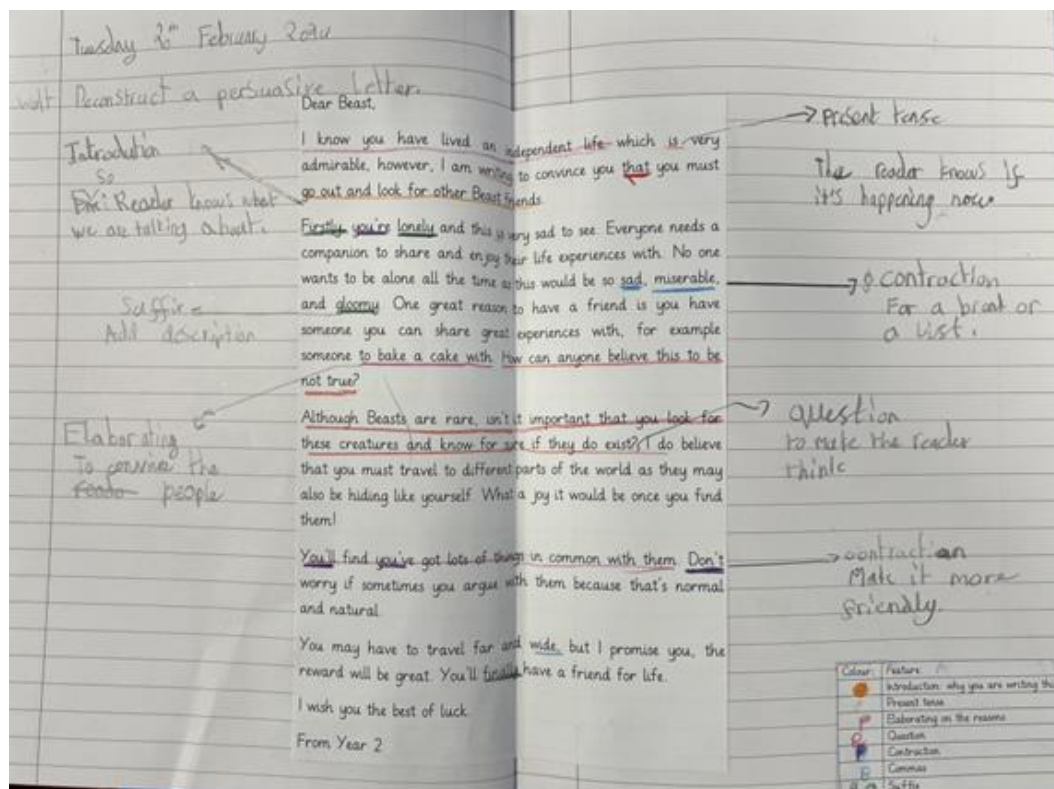 Tuesday 20th February 2024
walt Deconstruct a persuasive letter.
Introdution
so
Reader knows what
we are talking about.
Suffix =
Add description
Elaborating
To convine the
people
Dear Beast,
I know you have lived an independent life which is very
admirable, however, I am writing to convince you that you must
go out and look for other Beast friends.
Firstly you're lonely and this is very sad to see. Everyone needs a
companion to share and enjoy their life experiences with. No one
wants to be alone all the time as this would be so sad, miserable,
and gloomy. One great reason to have a friend is you have
someone you can share great experiences with, for example
someone to bake a cake with. How can anyone believe this to be
not true?
Although Beasts are rare, isn't it important that you look for
these creatures and know for sure if they do exist? I do believe
that you must travel to different parts of the world as they may
also be hiding like yourself. What a joy it would be once you find
them!
You'll find you've got lots of things in common with them. Don't
worry if sometimes you argue with them because that's normal
and natural.
You may have to travel far and wide, but I promise you, the
reward will be great. You'll finally have a friend for life.
I wish you the best of luck.
From Year 2
present tense
The reader knows if
it's happening now.
contraction
For a
a list.
question
to make the reader
think
contraction
Make it more
friendly.
Colour: Feature:
Introduction: why you are writing
Present tense
Elaborating on the reasons
Question
Contraction
Commas
Suffix